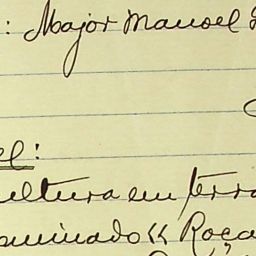 : Major Manoel
el:
ultura em terra
ominado " Roça